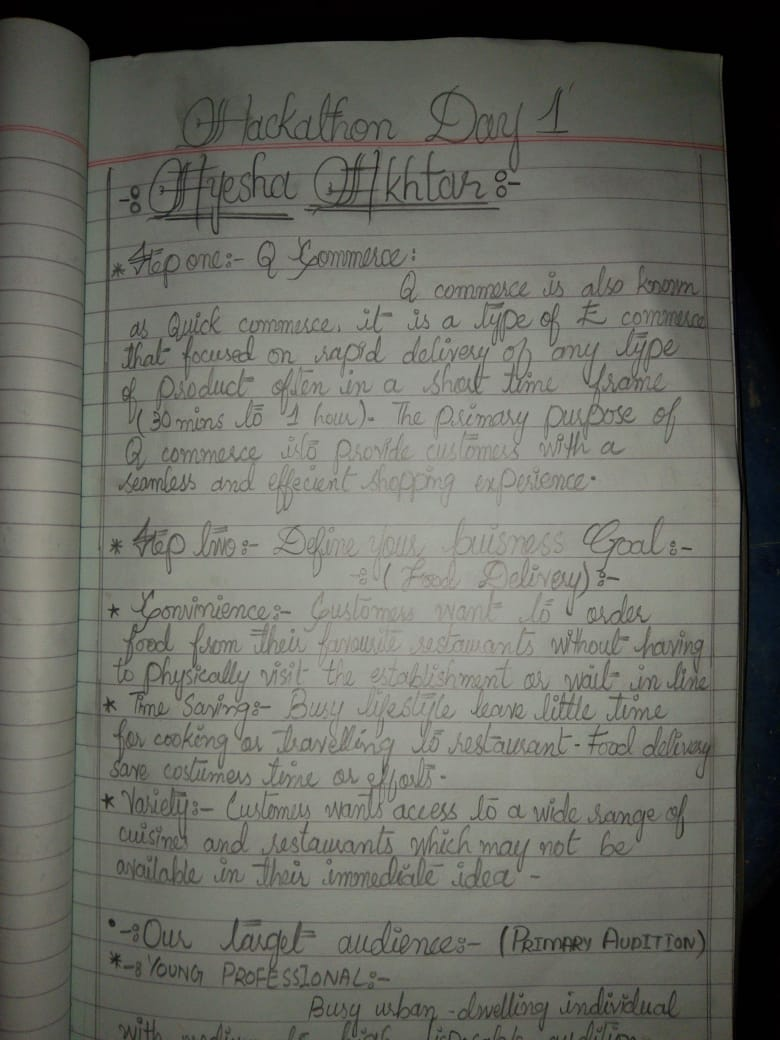 Hackathon Day 1
-: Ayesha Akhtar :-
* Step one:- Q Commerce:
Q commerce is also known
as Quick commerce, it is a type of E commerce
that focused on rapid delivery of any type
of product often in a short time frame
(30 mins to 1 hour). The primary purpose of
Q commerce is to provide customers with a
seamless and effecient shopping experience.
* Step two:- Define your buisness Goal:-
-: ( Food Delivery) :-
* Convinience:- Customers want to order
food from their favourite restaurants without having
to physically visit the establishment or wait in line
* Time Saving:- Busy lifestyle leave little time
for cooking or travelling to restaurant - Food delivery
save costumers time or efforts.
* Variety:- Customers wants access to a wide range of
cuisines and restaurants which may not be
available in their immediate idea -
• -: Our target audience:- (PRIMARY AUDITION)
* -: YOUNG PROFESSIONAL:-
Busy urban - dwelling individual
with to high